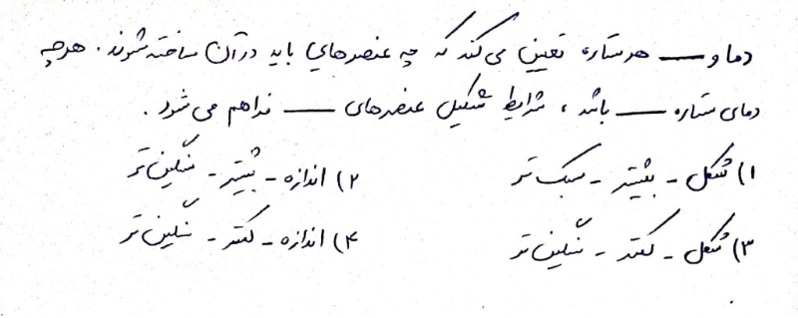 دما و ــــ هر ستاره تعیین می کند که چه عنصرهایی باید در آن ساخته شوند. هرچه
دمای ستاره ــــ باشد، شرایط تشکیل عنصرهای ــــ فراهم می شود.
۱) شکل - بیشتر - سبک تر ۲) اندازه - بیشتر - سنگین تر
۳) شکل - کمتر - سنگین تر ۴) اندازه - کمتر - سنگین تر